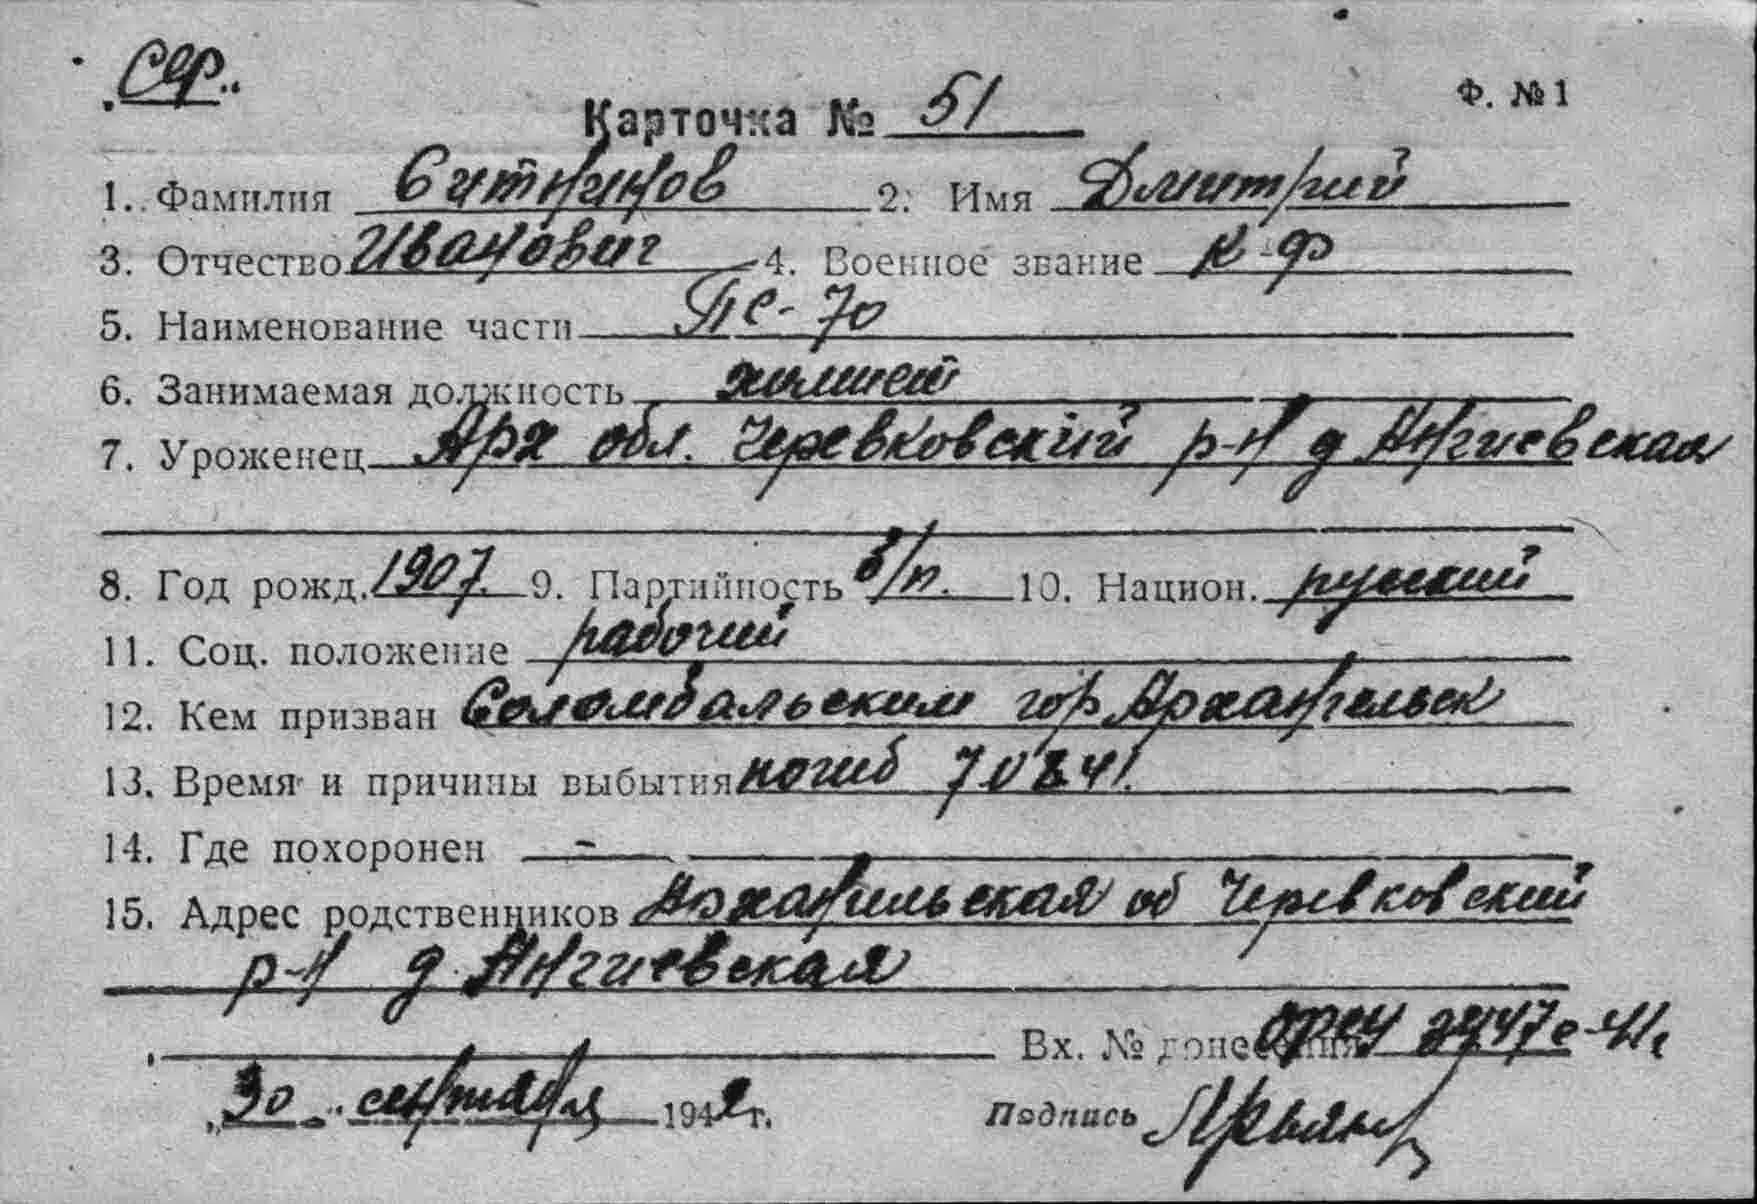 Сер.
Ф. № 1
Карточка № 51
1. Фамилия Ситников 2. Имя Дмитрий
3. Отчество Иванович 4. Военное звание к-ф
5. Наименование части ПС-70
6. Занимаемая должность
7. Уроженец Арх обл. Черевковский р-н д Янгиевская
8. Год рожд. 1907. 9. Партийность б/п. 10. Национ. русский
11. Соц. положение рабочий
12. Кем призван Соломбальским гор Архангельск
13. Время и причины выбытия погиб 7.08.41.
14. Где похоронен -
15. Адрес родственников Архангельская об Черевковский
р-н д. Янгиевская
Вх. № донесения 2447с-41г
„30„ сентября 1942г.
Подпись